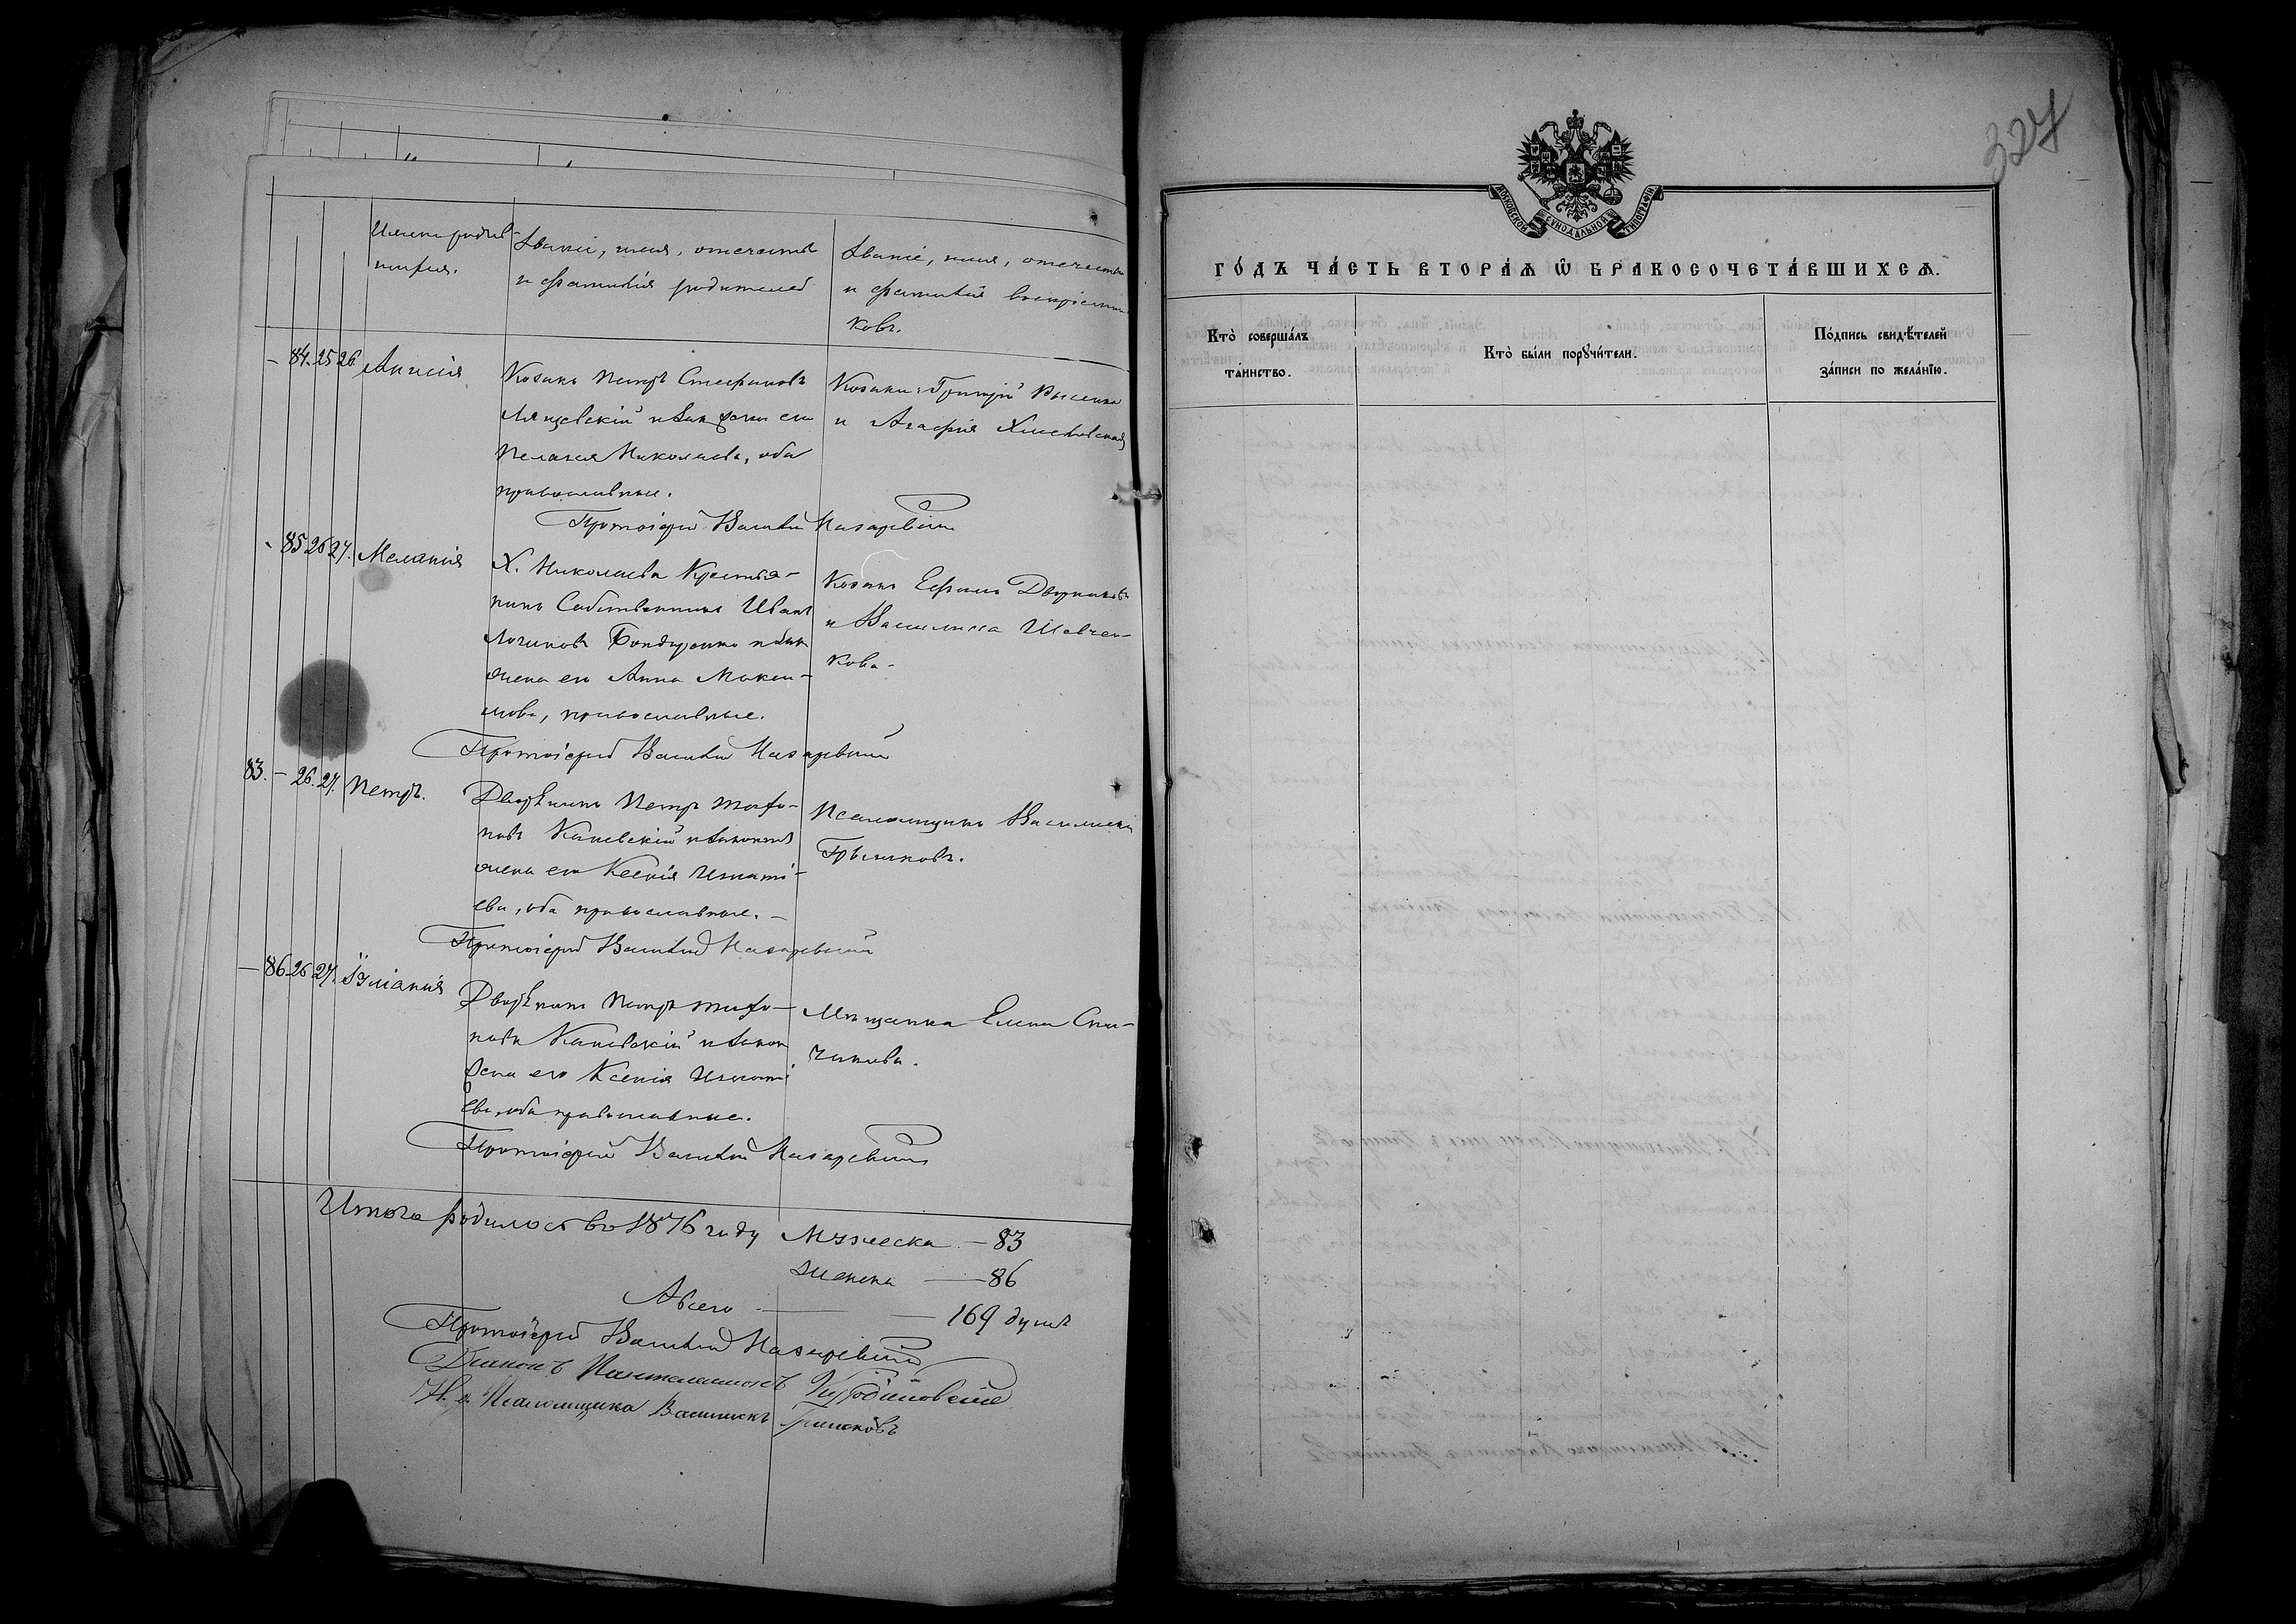 Имена родив-
шихся.
Званіе, имя, отчество
и фамилія родителей
Званіе, имя, отчество
и фамилія воспріемни
ковъ.
— 84. 25 26. Анисія
Козакъ Петръ Стефановъ
и законная жена его
Пелагія Николаева, оба
православные.
Козаки: Григорій
и Агафія
Протоіерей Василій Назаревскій
85 26 27. Меланія
Х. Николаевка Крестья-
нинъ Собственникъ Иванъ
Логиновъ Бондаренко и зак
жена его Анна Макси-
мова, православные.
Козакъ Ефимъ
и Василиса Шевчен-
кова.
Протоіерей Василій Назаревскій
83. — 26. 27. Петръ.
Дворянинъ Петръ Трифо-
новъ Каневскій и законная
жена его Ксенія Игнаті-
ева, оба православные. —
Псаломщикъ Василискъ
Гришковъ.
Протоіерей Василій Назаревскій
— 86 26 27. Іуліанія
Дворянинъ Петръ Трифо-
новъ Каневскій и закон
жена его Ксенія Игнаті
ева, оба православные.
Мѣщанка Елена
Протоіерей Василій Назаревскій
Итого родилось въ 1876 году Мужеска — 83
женска — 86
А всего — 169 душъ
Протоіерей Василій Назаревскій
Діаконъ Пантелеимонъ
И. д. Псаломщика Василискъ Гришковъ
327
МОСКОВСКОЙ СѴНОДАЛЬНОЙ ТИПОГРАФІИ
ГО́ДЪ ЧА́СТЬ ВТОРА́Ѧ Ѡ҆ БРАКОСОЧЕТА́ВШИХСѦ.
Кто̀ соверша́лъ
та́инство.
Кто̀ бы́ли порꙋчи́тели.
По́дпись свидѣ́телей
за́писи по жела́нїю.